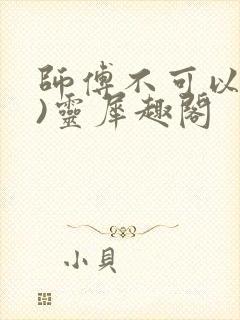 師傅不可以
)靈犀趣閣
小貝